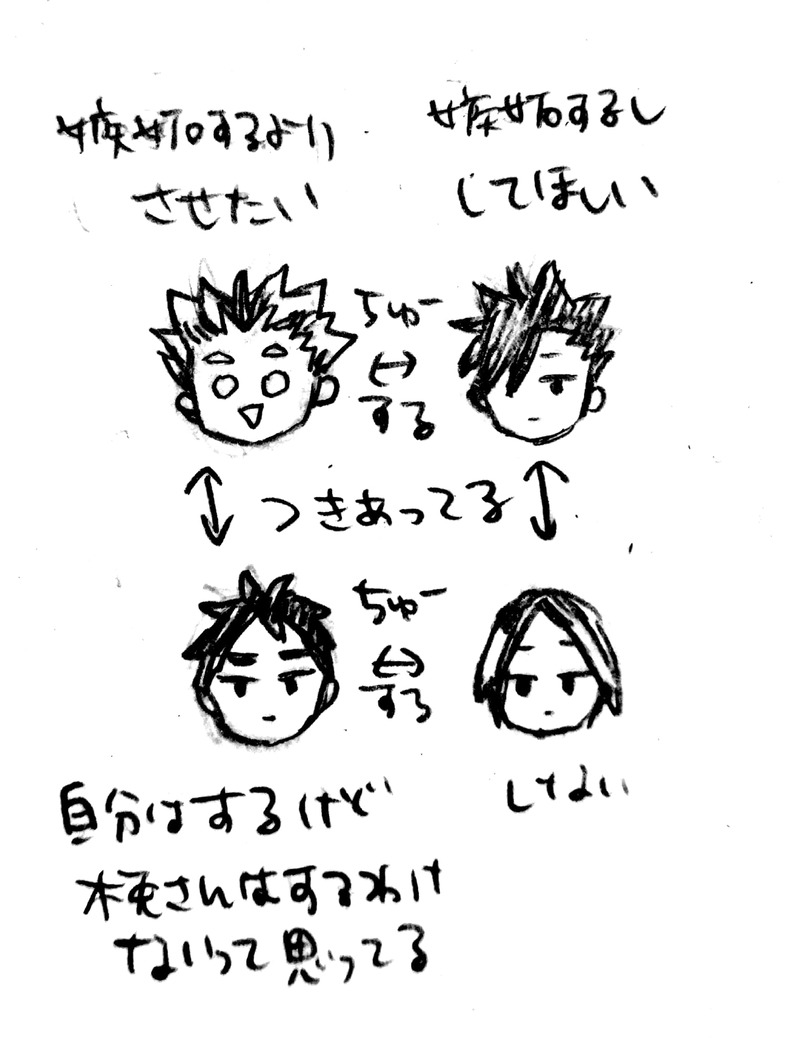 嫉妬するより
させたい
嫉妬するし
してほしい
ちゅー
する
つきあってる
ちゅー
する
自分はするけど
木兎さんはするわけ
ないって思ってる
しない